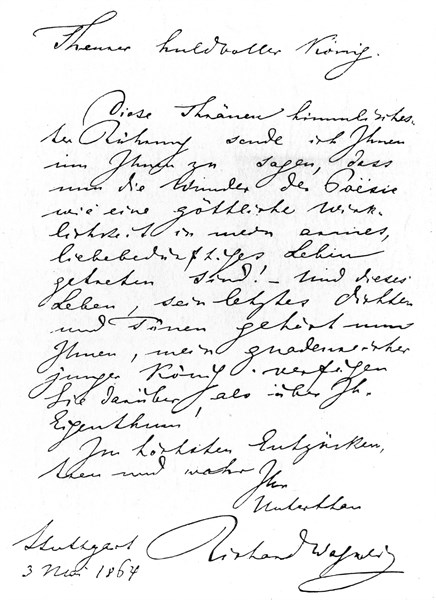 Theurer huldvoller König.
Diese Thränen himmlisches-
ter Rührung sende ich Ihnen
um Ihnen zu sagen, dass
nun die Wunder der Poësie
wie eine göttliche Wirk-
lichkeit in mein armes,
liebebedürftiges Leben
getreten sind! – Und dieses
Leben, sein letztes Dichten
und Tönen gehört nun
Ihnen, mein gnadenreicher
junger König: verfügen
Sie darüber, als über Ihr
Eigenthum!
Im höchsten Entzücken,
treu und wahr
Ihr
Unterthan
Richard Wagner
Stuttgart
3 Mai 1864